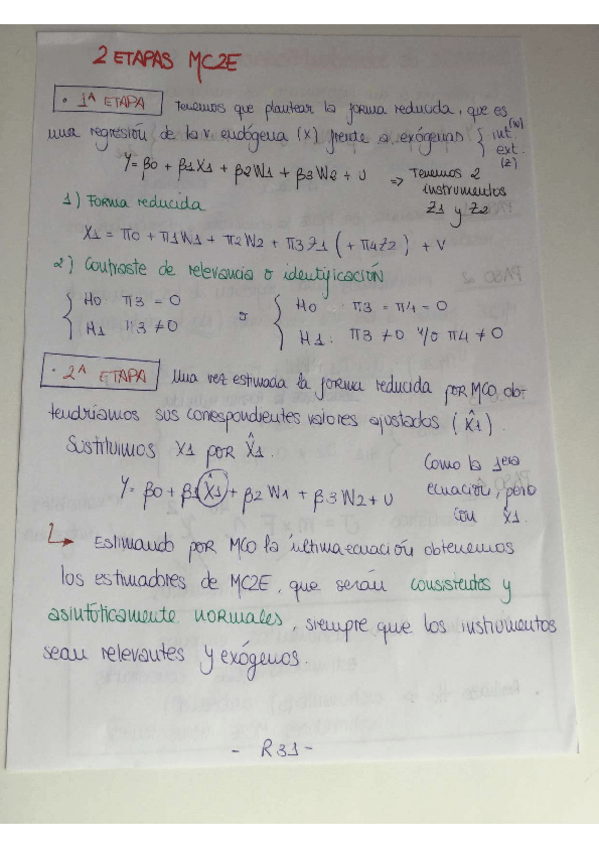 2 ETAPAS MC2E
· 1ª ETAPA Tenemos que plantear la forma reducida, que es
una regresión de la v. endógena (X) frente a exógenas { int (W)
ext. (Z)
Y = β0 + β1X1 + β2W1 + β3W2 + U => Tenemos 2
instrumentos
Z1 y Z2
1) Forma reducida
X1 = π0 + π1W1 + π2W2 + π3Z1 (+ π4Z2) + V
2) Contraste de relevancia o identificación
{ H0 π3 = 0 o { H0 : π3 = π4 = 0
H1 π3 ≠ 0 H1 : π3 ≠ 0 y/o π4 ≠ 0
· 2ª ETAPA Una vez estimada la forma reducida por MCO, ob-
tendríamos sus correspondientes valores ajustados (X̂1).
Sustituimos X1 por X̂1.
Y = β0 + β1 X̂1 + β2 W1 + β3W2 + U
Como la 1era
ecuación, pero
con X̂1.
↳ Estimando por MCO la última ecuación obtenemos
los estimadores de MC2E, que serán consistentes y
asintóticamente normales, siempre que los instrumentos
sean relevantes y exógenos.
- R31 -